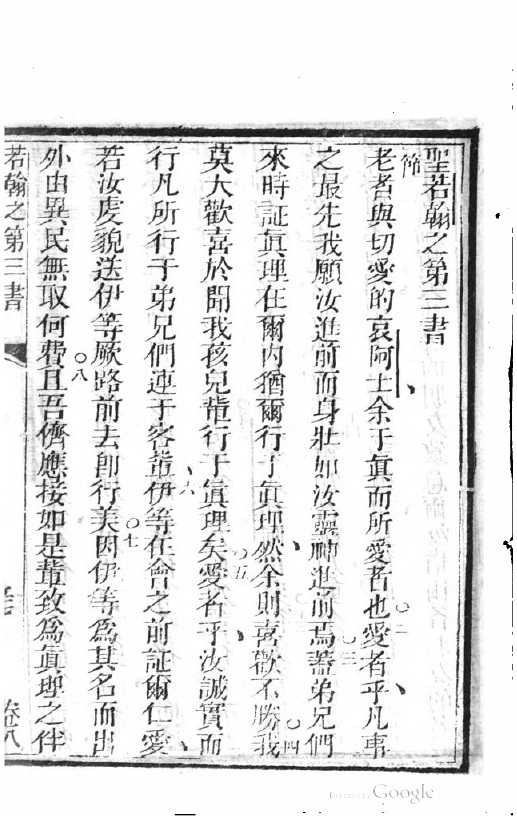 聖若翰之第三書
第一節
老者與切愛的哀阿士余于眞而所愛者也○二愛者乎凡事
之最先我願汝進前而身壯如汝靈神進前焉○三蓋弟兄們
來時証眞理在爾內猶爾行于眞理然余則喜歡不勝○四我
莫大歡喜於聞我孩兒輩行于眞理矣○五愛者乎汝誠實而
行凡所行于弟兄們連于客輩○六伊等在會之前証爾仁愛
若汝虔貌送伊等厥路前去卽行美○七因伊等爲其名而出
外由異民無取何費○八且吾儕應接如是輩致爲眞理之伴
若翰之第三書
卷八
Digitized by Google